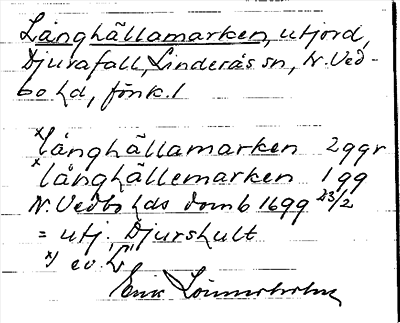 Långhällamarken, utjord,
Djurafall, Linderås sn, N. Ved-
bo hd, Jönk. l
x) långhällamarken 2 ggr
x långhällemarken 1 gg
N. Vedbo hds domb 1699 23/2
= utj. Djurshult
x) ev. L
Erik